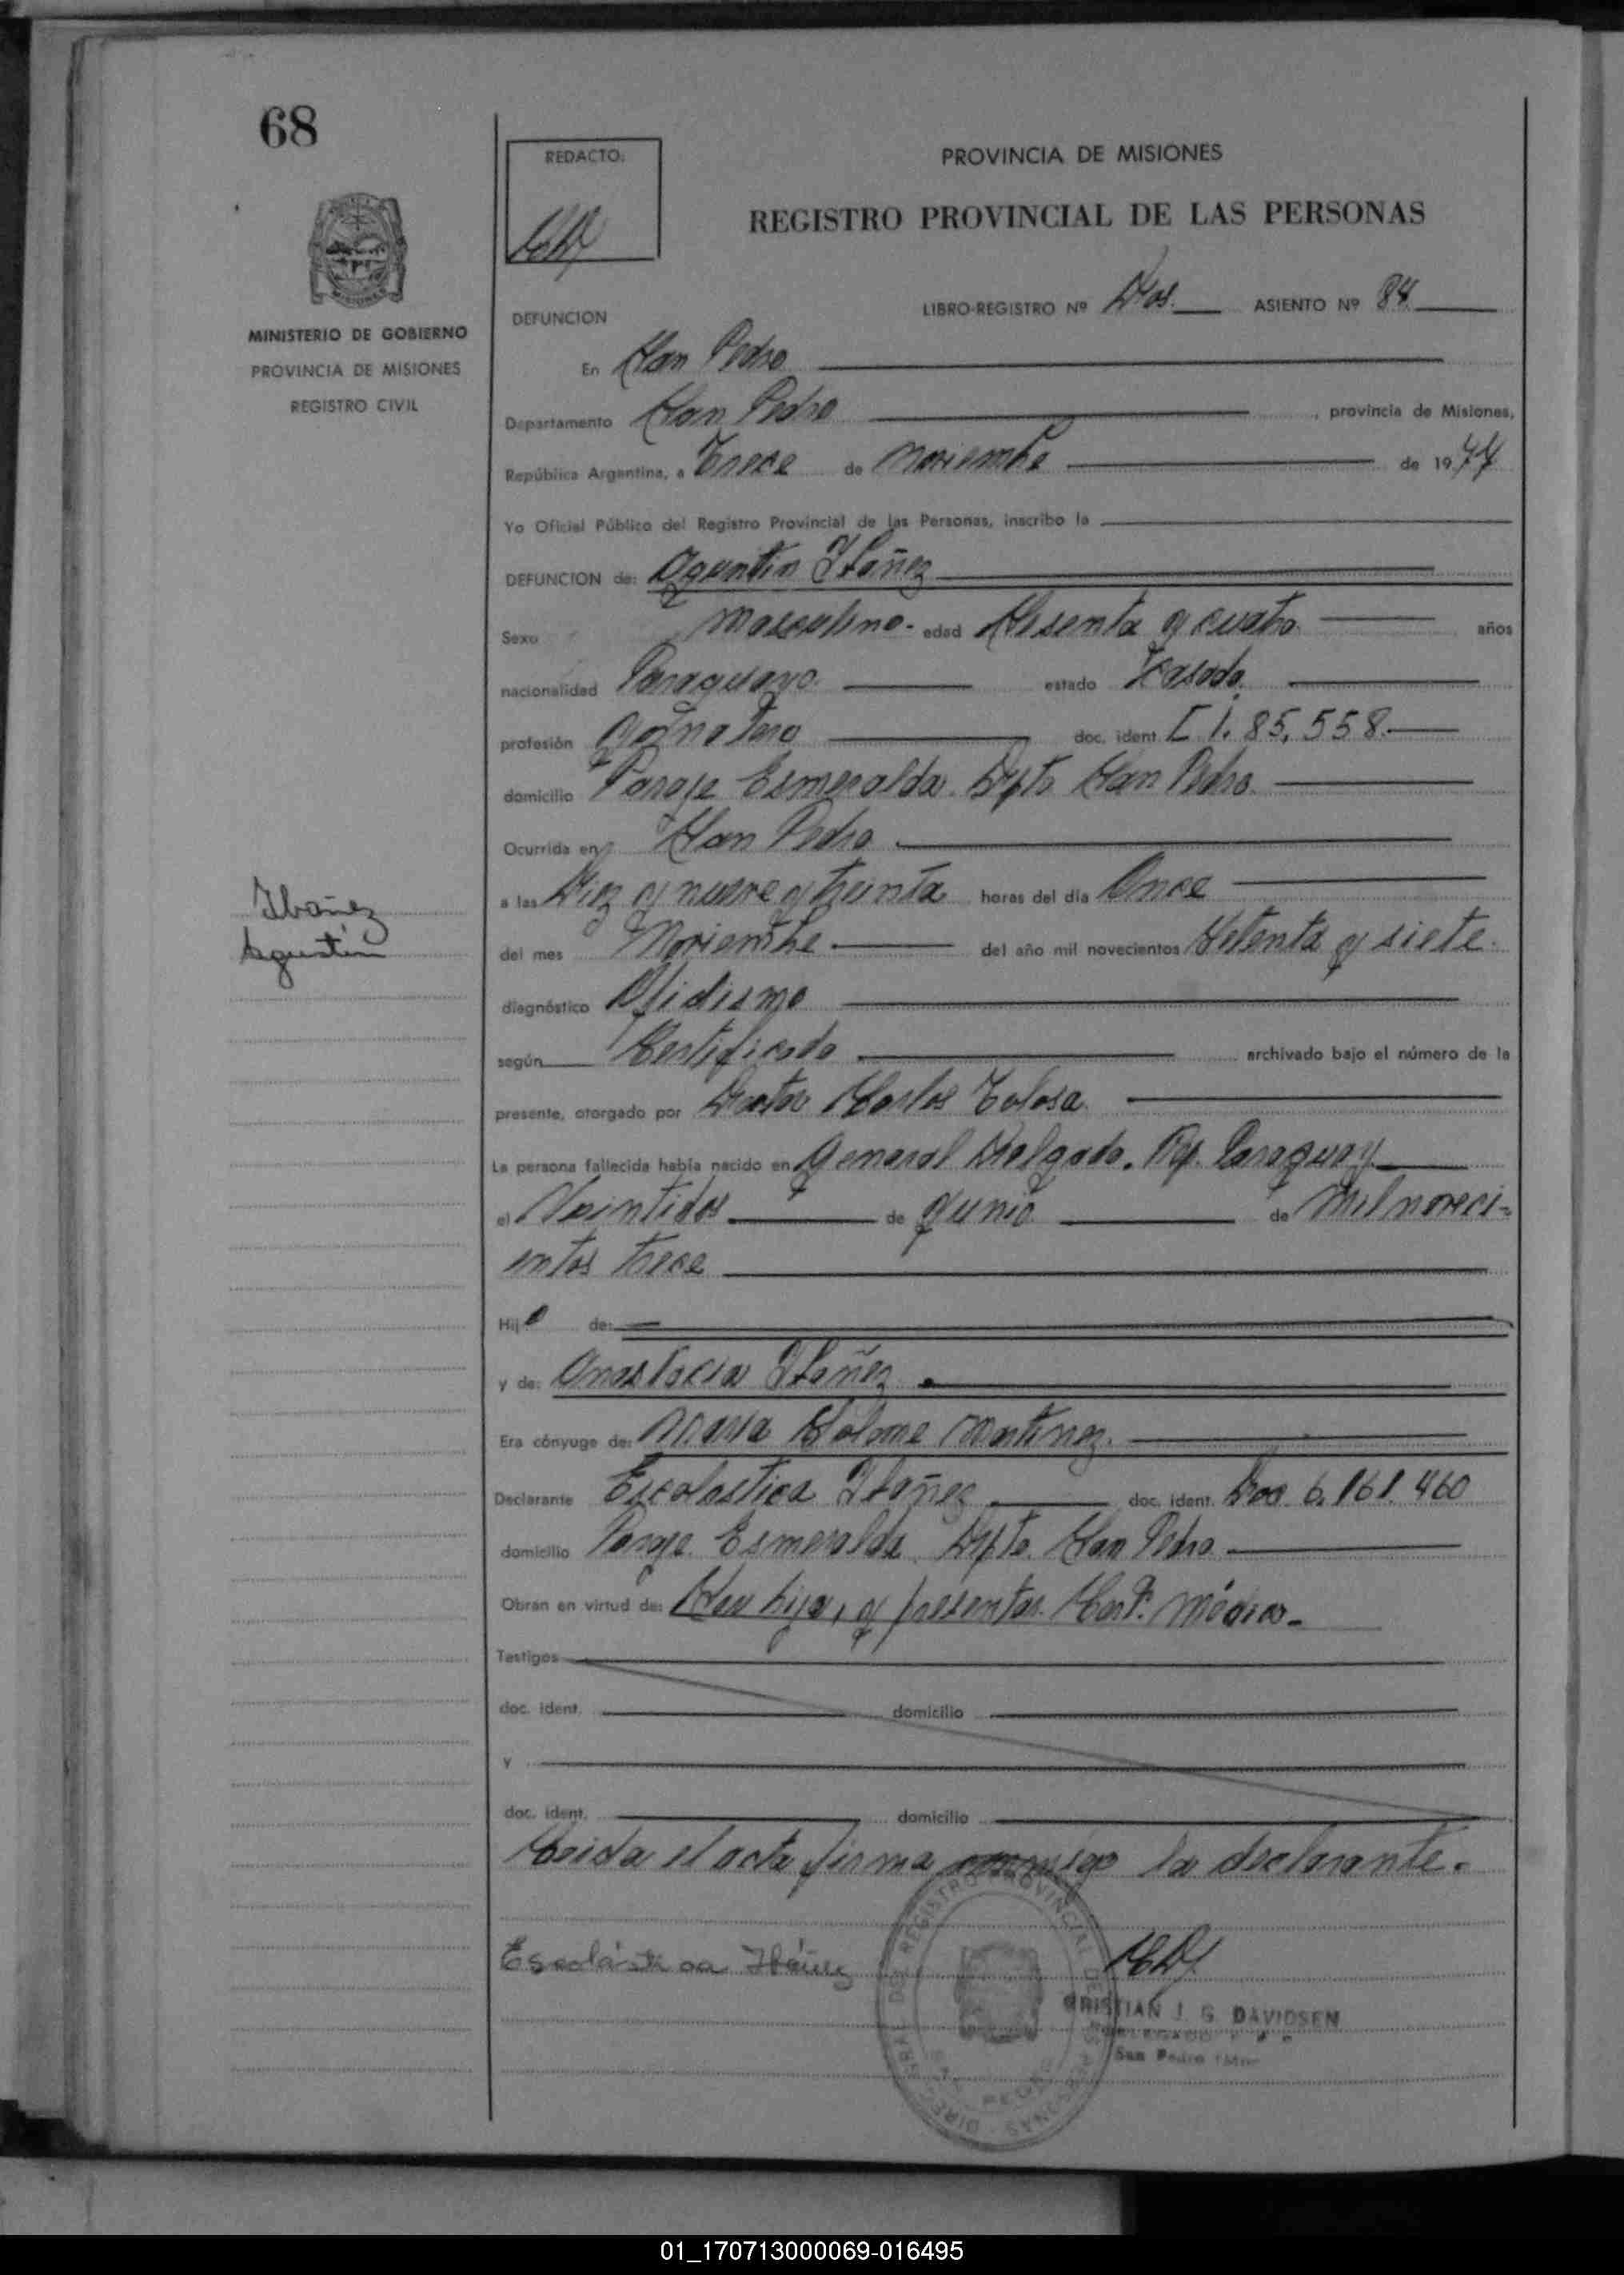 68
REDACTO:
PROVINCIA DE MISIONES
REGISTRO PROVINCIAL DE LAS PERSONAS
MINISTERIO DE GOBIERNO
PROVINCIA DE MISIONES
REGISTRO CIVIL
LIBRO-REGISTRO Nº Dos. ASIENTO Nº 84.
DEFUNCION
En San Pedro
Departamento San Pedro, provincia de Misiones,
República Argentina, a Trece de Noviembre de 1977
Yo Oficial Público del Registro Provincial de las Personas, inscribo la
DEFUNCION de: Agustin Ibañez
Sexo Masculino. edad Sesenta y cuatro. años
nacionalidad Paraguayo. estado Casado.
profesión Jornalero doc. ident. C I. 85.558.
domicilio Paraje Esmeralda. Dpto San Pedro.
Ocurrida en San Pedro
a las Diez y nueve y treinta horas del día Once
Ibañez
Agustín
del mes Noviembre del año mil novecientos Setenta y siete.
diagnóstico Ofidismo
según Certificado archivado bajo el número de la
presente, otorgado por Doctor Carlos Tolosa.
La persona fallecida había nacido en General Delgado. Rep. Paraguay
el Veintidos de Junio de Mil noveci-
entos trece
Hijo de:
y de: Anastacia Ibañez
Era cónyuge de: Maria Salome Martinez.
Declarante Escolastica Ibañez doc. ident. Doc 6.161.460
domicilio Paraje Esmeralda Dpto. San Pedro
Obran en virtud de: Ser hija, y presentar Cert. Médico-
Testigos
doc. ident. domicilio
y
doc. ident. domicilio
Leida el acta firma conmigo la declarante.
Escolástica Ibáñez
CRISTIAN J. G. DAVIDSEN
DELEGADO
San Pedro
01_170713000069-016495